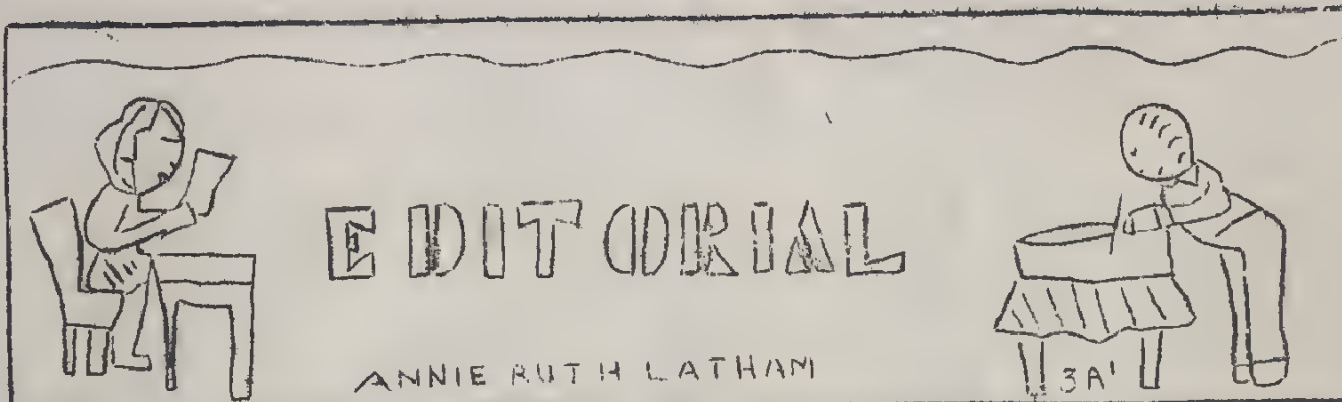 EDITORIAL
ANNIE RUTH LATHAM
3A'